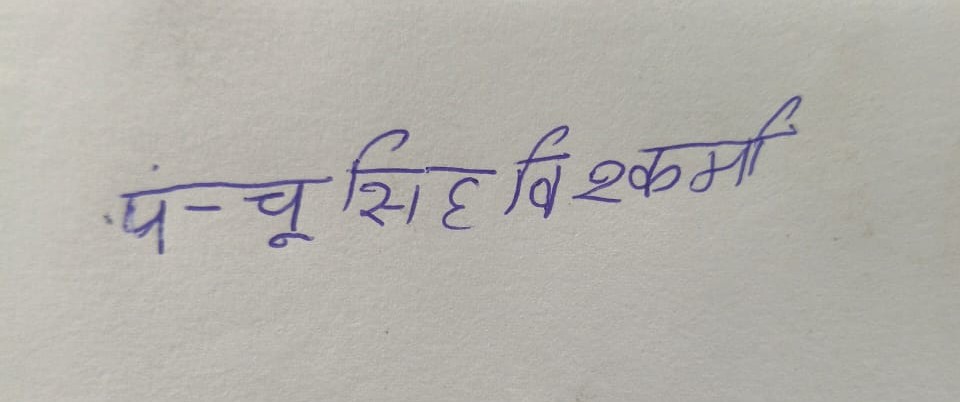 पंचू सिह विश्कर्मा